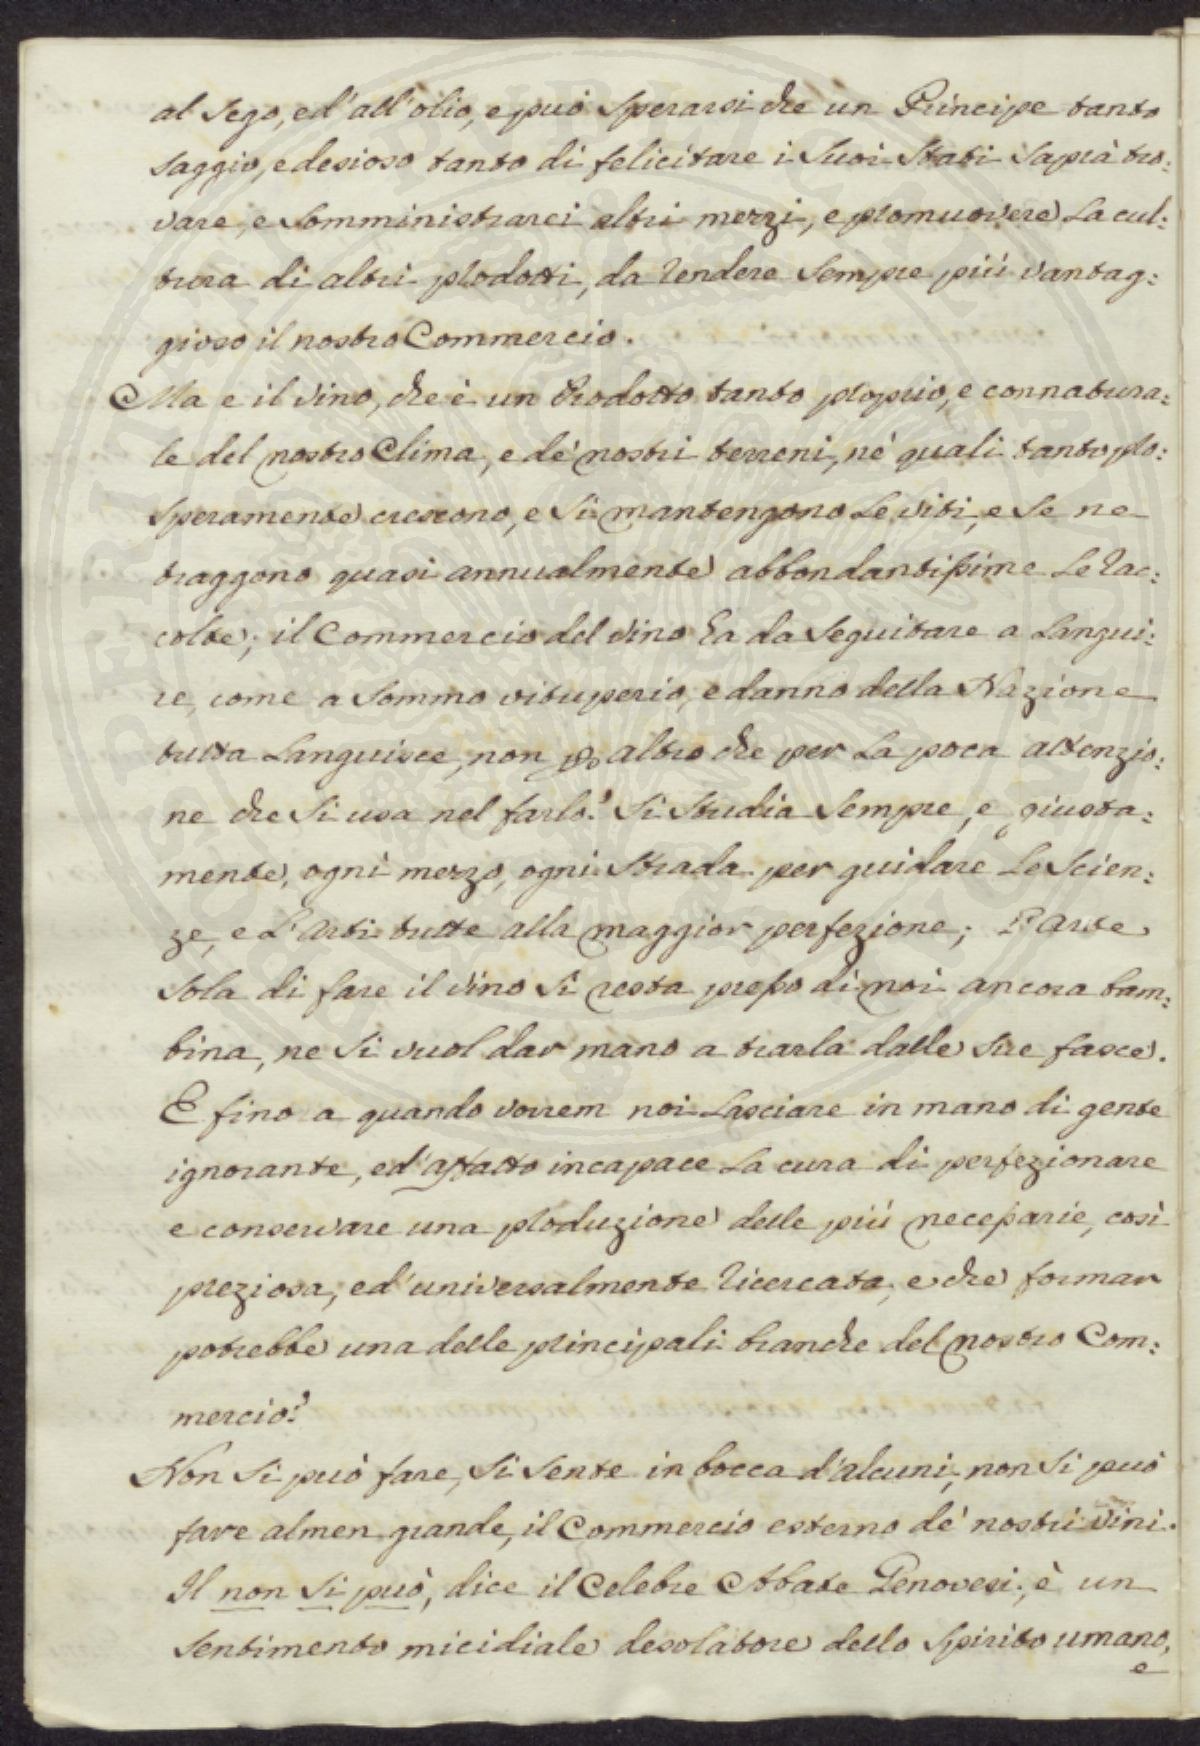 al sego, ed' all'olio, e può sperarsi che un Principe tanto
saggio, e desioso tanto di felicitare i suoi Stati saprà tro:
vare, e somministrarci altri mezzi, e promuovere la cul:
tura di altri prodotti, da rendere sempre più vantag:
gioso il nostro Commercio.
Ma e il vino, che è un Prodotto tanto proprio, e connatura:
le del nostro Clima, e de' nostri terreni, ne' quali tanto pro:
speramente crescono, e si mantengono le viti, e se ne
traggono quasi annualmente abbondantissime le rac:
colte; il Commercio del vino ha da seguitare a langui:
re, come a sommo vituperio, e danno della Nazione
tutta languisce, non p altro che per la poca attenzio:
ne che si usa nel farlo? Si studia sempre, e giusta:
mente, ogni mezzo, ogni strada per guidare le Scien:
ze, e l'Arti tutte alla maggior perfezione; l'Arte
sola di fare il vino si resta presso di noi ancora bam:
bina, ne si vuol dar mano a trarla dalle sue fasce.
E fino a quando vorrem noi lasciare in mano di gente
ignorante, ed' affatto incapace la cura di perfezionare
e conservare una produzione delle più necessarie, così
preziosa, ed' universalmente ricercata, e che formar
potrebbe una delle principali branche del nostro Com:
mercio?
Non si può fare, si sente in bocca d'alcuni, non si può
fare almen grande, il Commercio esterno de' nostri vini.
Il non si può, dice il celebre Abate Genovesi, è un
sentimento micidiale desolatore dello spirito umano,
e